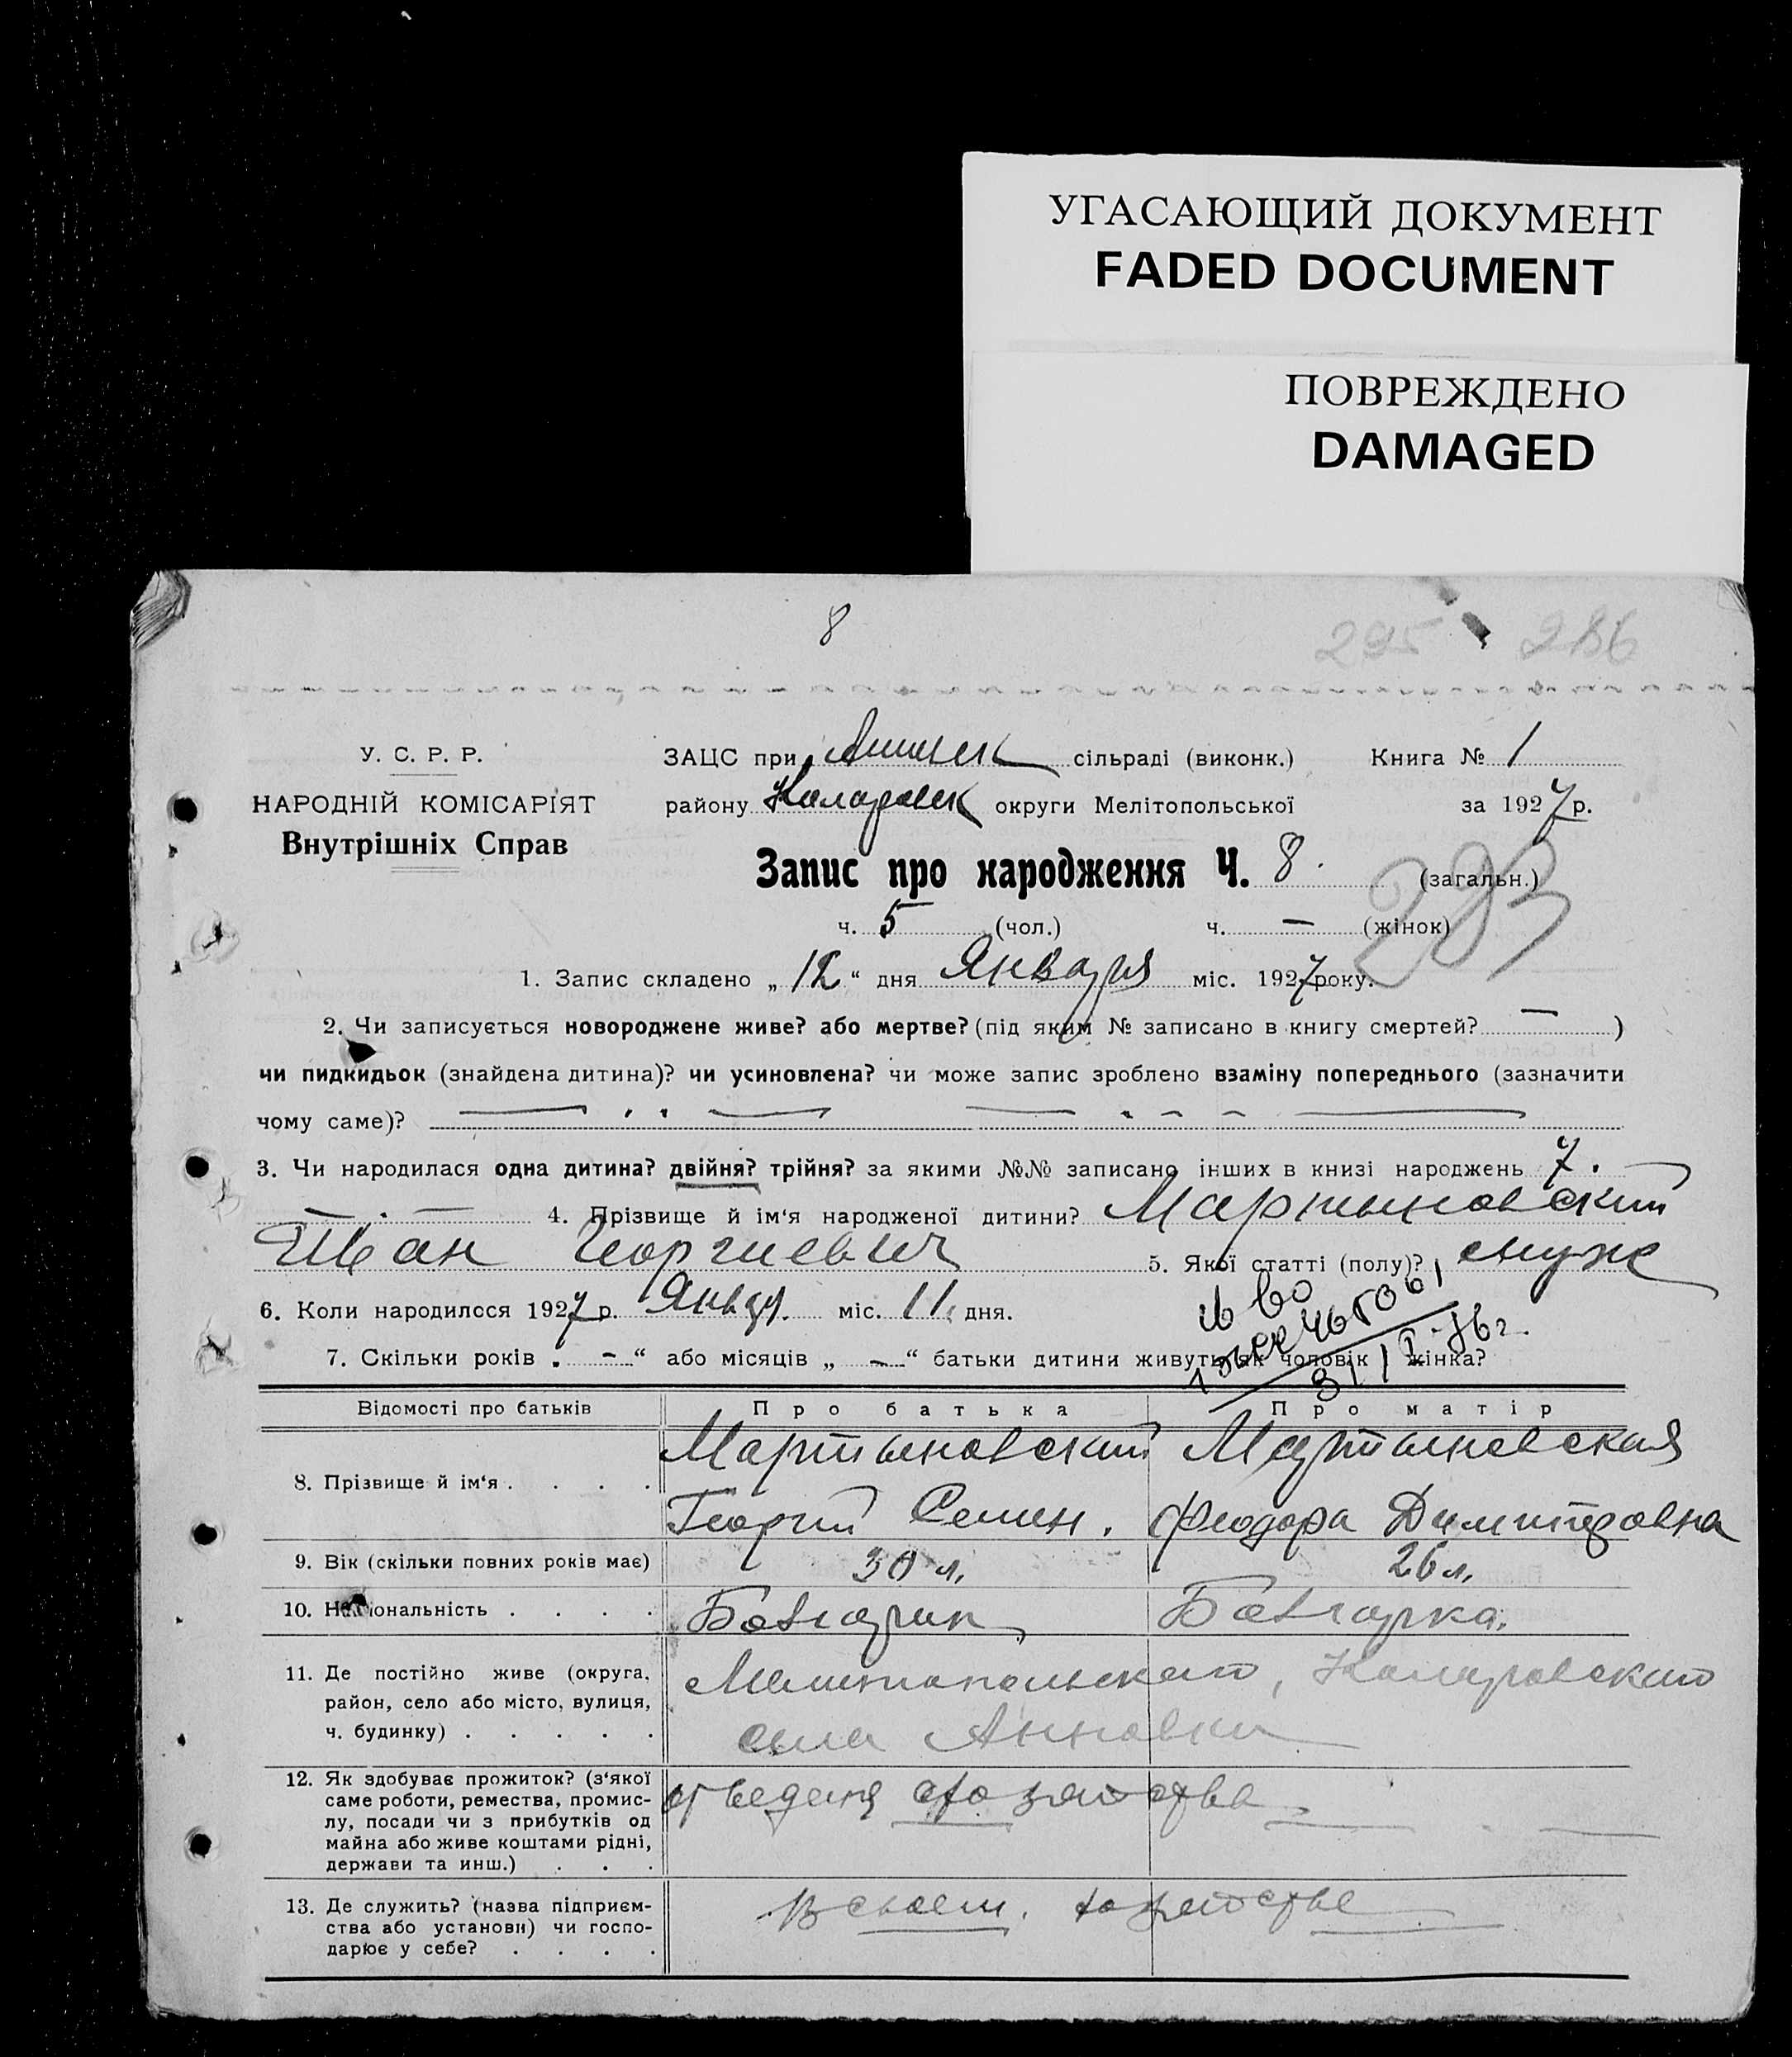 УГАСАЮЩИЙ ДОКУМЕНТ
FADED DOCUMENT
ПОВРЕЖДЕНО
DAMAGED
8
295 286
У. С. Р. Р.
НАРОДНІЙ КОМІСАРІЯТ
Внутрішніх Справ
ЗАЦС при сільраді (виконк.) Книга № 1
району Коларовск округи Мелітопольської за 1927 р.
Запис про народження Ч. 8. (загальн.)
283
ч. 5 (чол.) ч. — (жінок)
1. Запис складено „12“ дня Января міс. 1927 року.
2. Чи записується новороджене живе? або мертве? (під яким № записано в книгу смертей? — )
чи пидкидьок (знайдена дитина)? чи усиновлена? чи може запис зроблено взаміну попереднього (зазначити
чому саме)?
3. Чи народилася одна дитина? двійня? трійня? за якими №№ записано інших в книзі народжень 7.
4. Прізвище й ім‘я народженої дитини? Мартыновский
Георгиевич 5. Якої статті (полу)? муж
6. Коли народилося 1927 р. Январ. міс. 11 дня.
7. Скільки років „ – “ або місяців „ – “ батьки дитини живуть як чоловік і жінка?
Відомості про батьків Про батька Про матір
8. Прізвище й ім‘я . . . . Мартыновский Мартыновская
Георгий Семен. Феодора Димитровна
9. Вік (скільки повних років має) 30 л. 26 л.
10. Національність . . . . Болгарин Болгарка.
11. Де постійно живе (округа, район, село або місто, вулиця, ч. будинку) . . . . . Мелитопольского, Коларовского
села Анновки
12. Як здобуває прожиток? (з‘якої саме роботи, ремества, промислу, посади чи з прибутків од майна або живе коштами рідні, держави та инш.) . . . хозяйства
13. Де служить? (назва підприємства або установи) чи господарює у себе? . . . . В своем хозяйстве